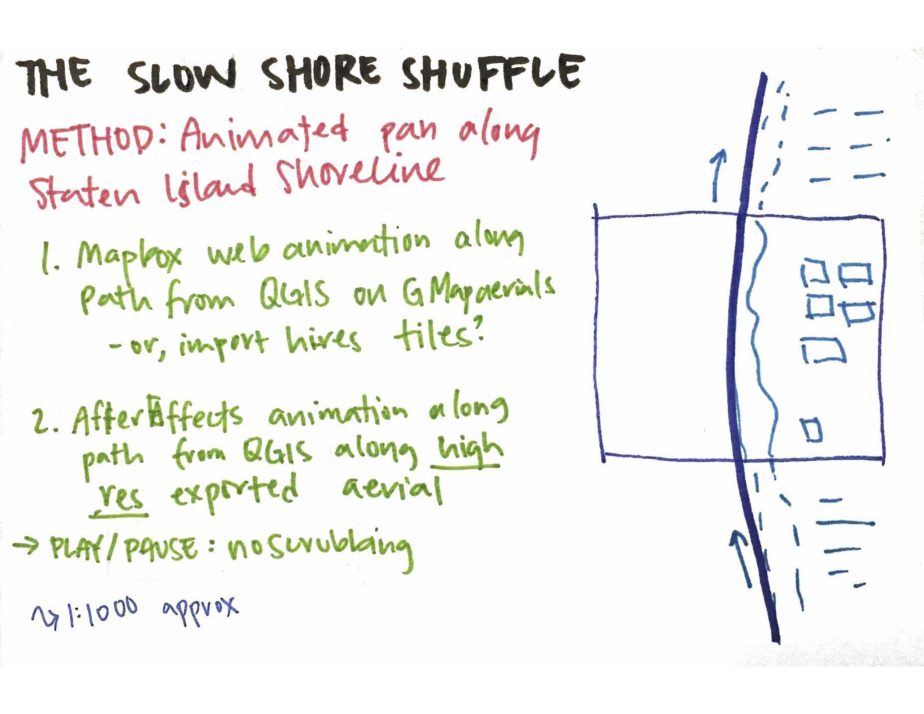 THE SLOW SHORE SHUFFLE
METHOD: Animated pan along
Staten Island Shoreline
1. Mapbox web animation along
path from QGIS on GMap aerials
- or, import hires tiles?
2. After Effects animation along
path from QGIS along high
res exported aerial
→ PLAY/PAUSE: no scrubbing
↝ 1:1000 approx